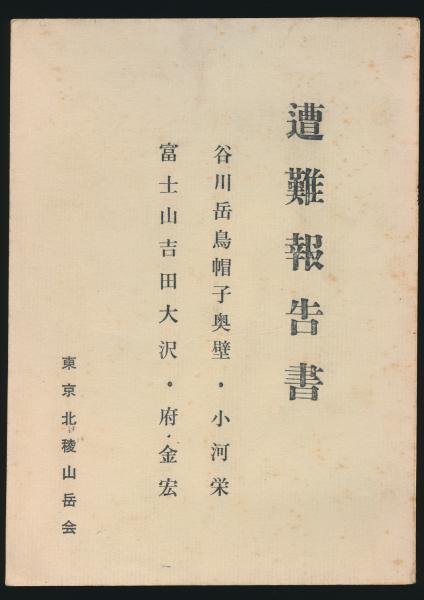 遭難報告書
谷川岳烏帽子奥壁・小河栄
富士山吉田大沢・府金宏
東京北稜山岳会